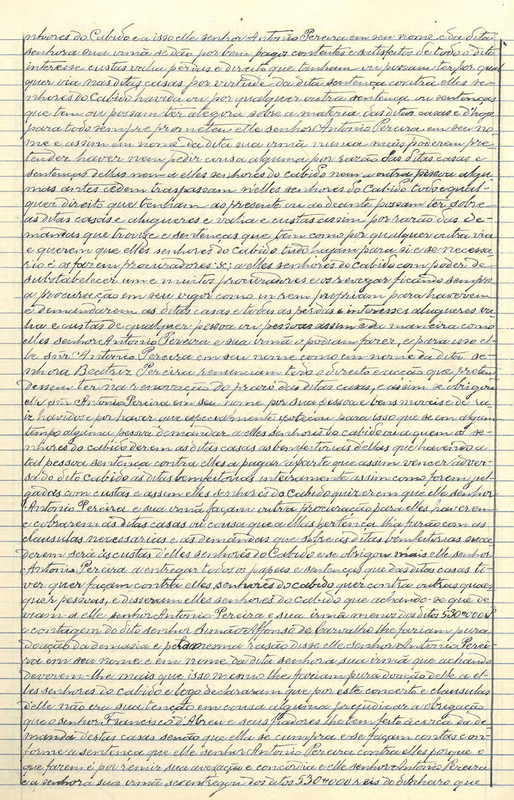 nhores do Cabido e a isso elle senhor Antonio Pereira em seu nome e da dita
senhora sua irmã se dão por bem pagos contentes e satisfeitos de todo o dito
interesse custas valia perdas e direito que tenham ou possam ter por qual
quer via nas ditas casas por virtude da dita sentença contra elles se-
nhores do Cabido havida ou por qualquer outra sentença ou sentenças
que tem ou possam ter alegora sobre a materia das ditas casas e d'hoje
para todo sempre prometeu elle senhor Antonio Pereira, em seu no
me e assim em nome da dita sua irmã nunca mais poderem pre-
tender haver nem pedir cousa alguma por razão das ditas casas e
sentenças d'elles nem a elles senhores do cabido nem a outra pessoa algu
ma antes cedem traspassam n'elles senhores do Cabido todo e qual-
quer direito que tenham ao presente ou ao deante possam ter sobre
as ditas casas e alugueres e valia e custas assim por razão das de-
mandas que trouxe e sentenças que tem como por qualquer outra via
e querem que elles senhores do cabido tudo hajam para si e se necessa-
rio é os fazem procuradores &; a elles senhores do cabido com poder de
substabelecer um e muitos procuradores e os revogar ficando sempre
a procuração em seu vigor como in rem propriam para haverem
e demandarem as ditas casas e todas as perdas e interesses alugueres va
lia e custas de qualquer pessoa ou pessoas assim e da maneira como
elles senhor Antonio Pereira e sua irmã o podiam fazer, e para isso el-
le snr Antonio Pereira em seu nome como em nome da dita se-
nhora Beatriz Pereira renunciam todo o direito e acção que preten
dessem ter na renovação do prazo das ditas casas, e assim se obrigou
elle snr Antonio Pereira em seu nome por sua pessoa e bens moveis e de ra
iz havidos e por haver que especialmente para isso que se em algum
tempo alguma pessoa demandar a elles senhores do cabido ou a quem os se-
nhores do cabido derem as ditas casas as bemfeitorias d'ellas que havendo a
tal pessoa sentença contra elles a pagar a parte que assim vencer
do dito Cabido as ditas bemfeitorias inteiramente assim como forem jul-
gadas com custas e assim elles senhores do Cabido quizerem que elle senhor
Antonio Pereira e sua irmã façam outra procuração para elles haverem
e cobrarem as ditas casas ou cousa que a elles pertença lha farão com as
clausulas necessarias e as demandas que sobre as ditas bemfeitorias succe
derem será ás custas d'elles senhores do Cabido e se obrigou mais elle senhor
Antonio Pereira a entregar todos os papeis e sentenças que das ditas casas ti-
ver quer façam contra elles senhores do cabido quer contra outras quaes
quer pessoas, e disseram elles senhores do cabido que achando-se que de
viam a elle senhor Antonio Pereira e sua irmã menos dos ditos 530$000 rs
e contagem do dito senhor Simão Affonso de Carvalho lhe fariam pura
doação da demasia e pela mesma rasão disse elle senhor Antonio Perei-
ra em seu nome e em nome da dita senhora sua irmã que achando
deverem-lhe mais que isso mesmo lhe fariam pura doação d'elle a el-
les senhores do cabido e logo declararam que por este concerto e clausulas
d'elle não era sua tenção em cousa alguma prejudicar a obrigação
que o senhor Francisco d'Abreu e seus fiadores lhe tem feito ácerca da de-
manda d'estas casas senão que ella se cumpra e se façam contas con-
forme a sentença que elle senhor Antonio Pereira contra elles porque o
que fazem é por remir sua avexação e concordia e elle senhor Antonio Pereira
e a senhora sua irmã se entregam dos ditos 530$000 reis do dinheiro que